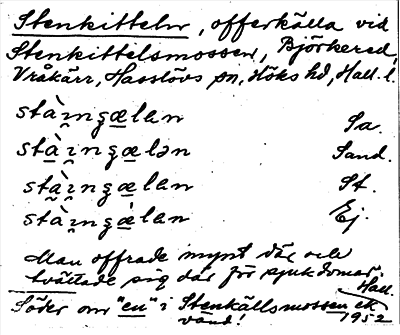 Stenkitteln, offerkälla vid
Stenkittelsmossen, Björkered,
Vråkärr, Hasslövs sn, Höks hd, Hall. l.
stàɪ̯ngælan Sa.
stàɪ̯ngælən Sand.
stàɪ̯ngælan St.
stàɪ̯ngælan Ej.
Man offrade mynt där och
tvättade sig där för sjukdomar.
Söder om "en" i Stenkällsmossen ek.
Hall. 1952